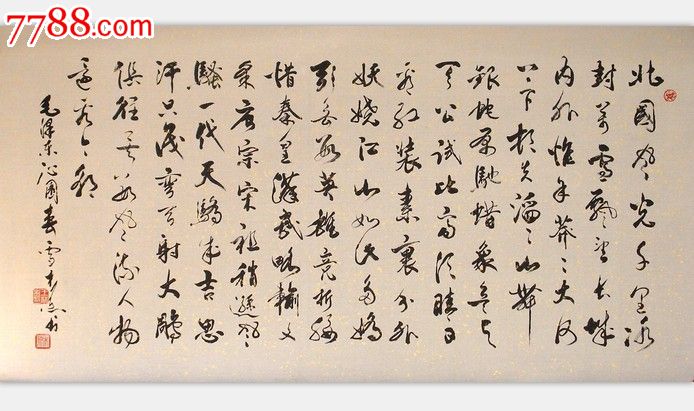 7788.com
北國风光千里冰
封萬雪飄望长城
内外惟余莽〻大河
上下顿失滔〻山舞
银蛇原驰蜡象欲与
天公试比高须晴日
看红装素裹分外
妖娆江山如此多娇
引无数英雄竞折腰
惜秦皇漢武略输文
采唐宗宋祖稍逊风
骚一代天骄成吉思
汗只识弯弓射大雕
俱往矣数风流人物
还看今朝
毛泽东沁园春雪